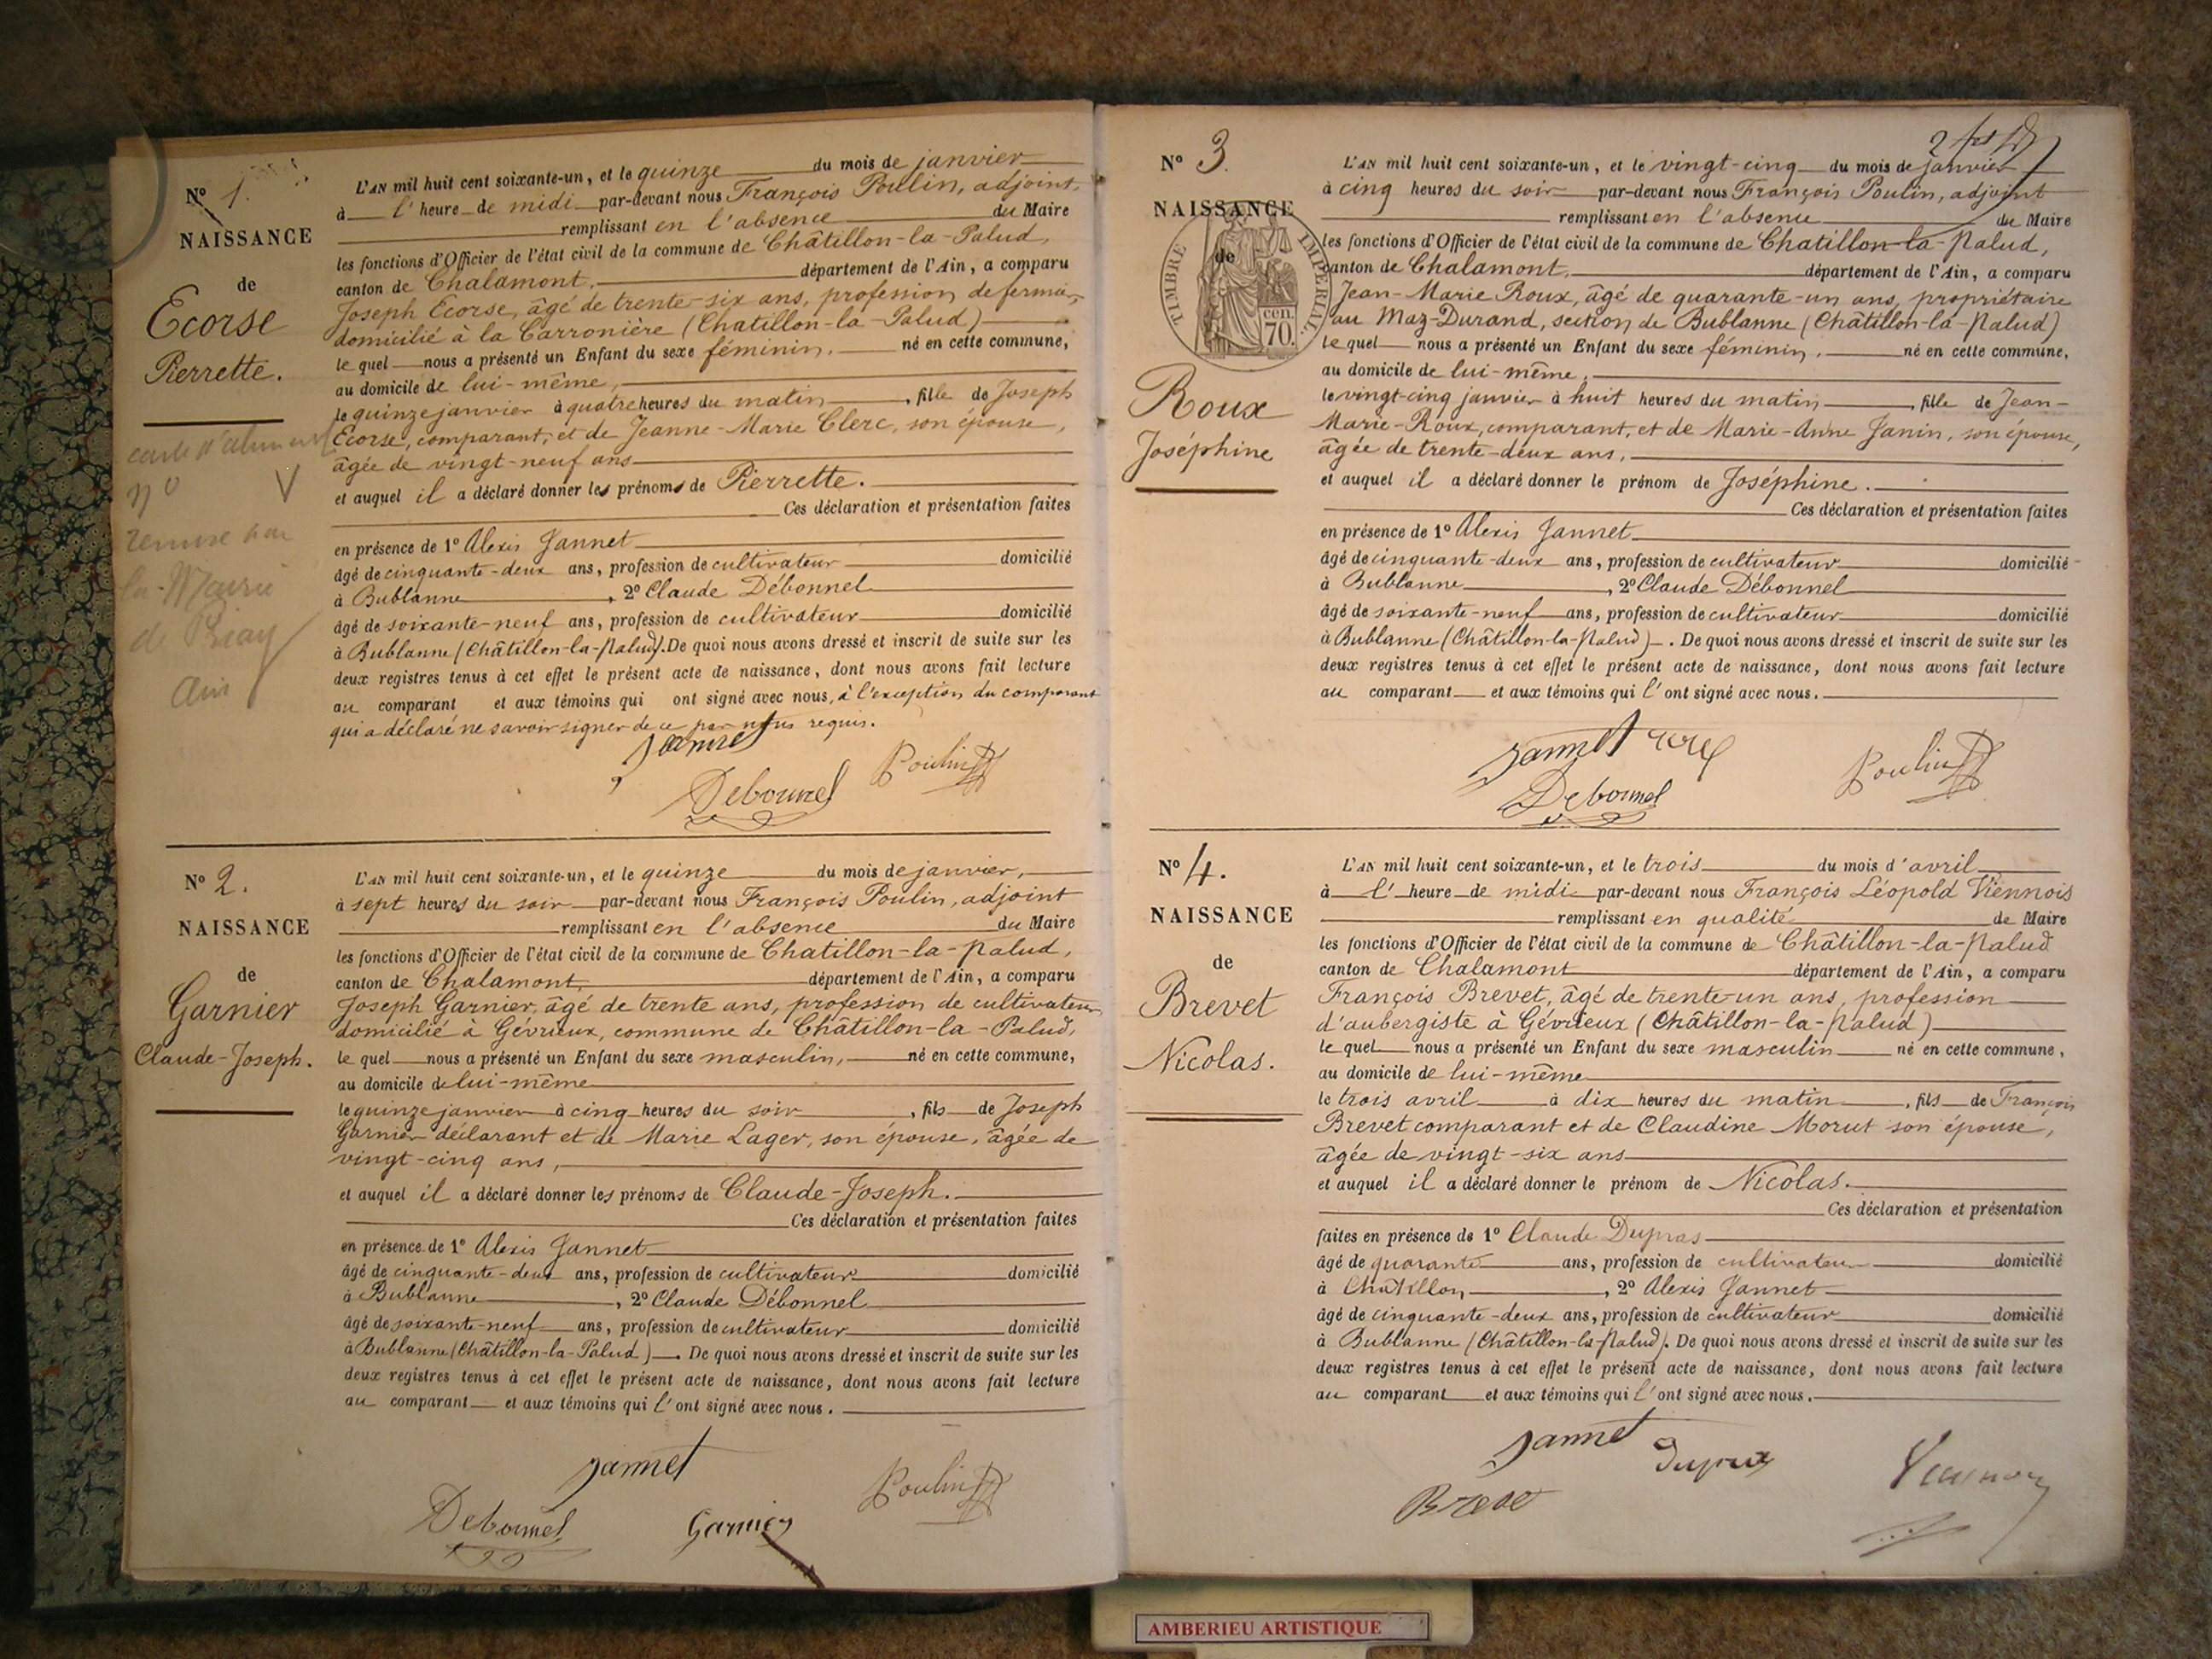 N° 1.
NAISSANCE
de
Ecorse
Pierrette.
n°
remise par
la Mairie
de
Ain
L'AN mil huit cent soixante-un, et le quinze du mois de janvier
à l'heure de midi par-devant nous François Poulin, adjoint,
remplissant en l'absence du Maire
les fonctions d'Officier de l'état civil de la commune de Châtillon-la-Palud,
canton de Chalamont, département de l'Ain, a comparu
Joseph Ecorse, âgé de trente-six ans, profession de fermier,
domicilié à la Carronière (Chatillon-la-Palud)
le quel nous a présenté un Enfant du sexe féminin, né en cette commune,
au domicile de lui-même,
le quinze janvier à quatre heures du matin, fille de Joseph
Ecorse, comparant, et de Jeanne-Marie Clerc, son épouse,
âgée de vingt-neuf ans
et auquel il a déclaré donner les prénoms de Pierrette.
Ces déclaration et présentation faites
en présence de 1° Alexis Jannet
âgé de cinquante-deux ans, profession de cultivateur domicilié
à Bublanne, 2° Claude Débonnel
âgé de soixante-neuf ans, profession de cultivateur domicilié
à Bublanne (Châtillon-la-Palud). De quoi nous avons dressé et inscrit de suite sur les
deux registres tenus à cet effet le présent acte de naissance, dont nous avons fait lecture
au comparant et aux témoins qui ont signé avec nous, à l'exception du comparant
qui a déclaré ne savoir signer de ce par nous requis.
Jannet
Poulin
Debonnel
N° 2.
NAISSANCE
de
Garnier
Claude-Joseph.
L'AN mil huit cent soixante-un, et le quinze du mois de janvier,
à sept heures du soir par-devant nous François Poulin, adjoint
remplissant en l'absence du Maire
les fonctions d'Officier de l'état civil de la commune de Chatillon-la-Palud,
canton de Chalamont, département de l'Ain, a comparu
Joseph Garnier, âgé de trente ans, profession de cultivateur
domicilié à Gévrieux, commune de Châtillon-la-Palud,
le quel nous a présenté un Enfant du sexe masculin, né en cette commune,
au domicile de lui-même
le quinze janvier à cinq heures du soir, fils de Joseph
Garnier déclarant et de Marie Lager, son épouse, âgée de
vingt-cinq ans,
et auquel il a déclaré donner les prénoms de Claude-Joseph.
Ces déclaration et présentation faites
en présence de 1° Alexis Jannet
âgé de cinquante-deux ans, profession de cultivateur domicilié
à Bublanne, 2° Claude Débonnel
âgé de soixante-neuf ans, profession de cultivateur domicilié
à Bublanne (Châtillon-la-Palud). De quoi nous avons dressé et inscrit de suite sur les
deux registres tenus à cet effet le présent acte de naissance, dont nous avons fait lecture
au comparant et aux témoins qui l'ont signé avec nous.
Jannet
Poulin
Debonnel
Garnier
N° 3.
NAISSANCE
de
TIMBRE IMPERIAL
cen.
70.
Roux
Joséphine
L'AN mil huit cent soixante-un, et le vingt-cinq du mois de janvier
à cinq heures du soir par-devant nous François Poulin, adjoint
remplissant en l'absence du Maire
les fonctions d'Officier de l'état civil de la commune de Chatillon-la-Palud,
canton de Chalamont, département de l'Ain, a comparu
Jean-Marie Roux, âgé de quarante-un ans, propriétaire
au Maz-Durand, section de Bublanne (Châtillon-la-Palud)
le quel nous a présenté un Enfant du sexe féminin, né en cette commune,
au domicile de lui-même,
le vingt-cinq janvier à huit heures du matin, fille de Jean-
Marie-Roux, comparant, et de Marie-Anne Janin, son épouse,
âgée de trente-deux ans,
et auquel il a déclaré donner le prénom de Joséphine.
Ces déclaration et présentation faites
en présence de 1° Alexis Jannet
âgé de cinquante-deux ans, profession de cultivateur domicilié
à Bublanne, 2° Claude Débonnel
âgé de soixante-neuf ans, profession de cultivateur domicilié
à Bublanne (Châtillon-la-Palud). De quoi nous avons dressé et inscrit de suite sur les
deux registres tenus à cet effet le présent acte de naissance, dont nous avons fait lecture
au comparant et aux témoins qui l'ont signé avec nous.
Jannet
Poulin
Debonnel
N° 4.
NAISSANCE
de
Brevet
Nicolas.
L'AN mil huit cent soixante-un, et le trois du mois d'avril
à l'heure de midi par-devant nous François Léopold Viennois
remplissant en qualité de Maire
les fonctions d'Officier de l'état civil de la commune de Châtillon-la-Palud
canton de Chalamont département de l'Ain, a comparu
François Brevet, âgé de trente-un ans, profession
d'aubergiste à Gévrieux (Châtillon-la-Palud)
le quel nous a présenté un Enfant du sexe masculin né en cette commune,
au domicile de lui-même
le trois avril à dix heures du matin, fils de François
Brevet comparant et de Claudine Morut son épouse,
âgée de vingt-six ans
et auquel il a déclaré donner le prénom de Nicolas.
Ces déclaration et présentation
faites en présence de 1° Claude Dupras
âgé de quarante ans, profession de cultivateur domicilié
à Châtillon, 2° Alexis Jannet
âgé de cinquante-deux ans, profession de cultivateur domicilié
à Bublanne (Châtillon-la-Palud). De quoi nous avons dressé et inscrit de suite sur les
deux registres tenus à cet effet le présent acte de naissance, dont nous avons fait lecture
au comparant et aux témoins qui l'ont signé avec nous.
Jannet
AMBERIEU ARTISTIQUE